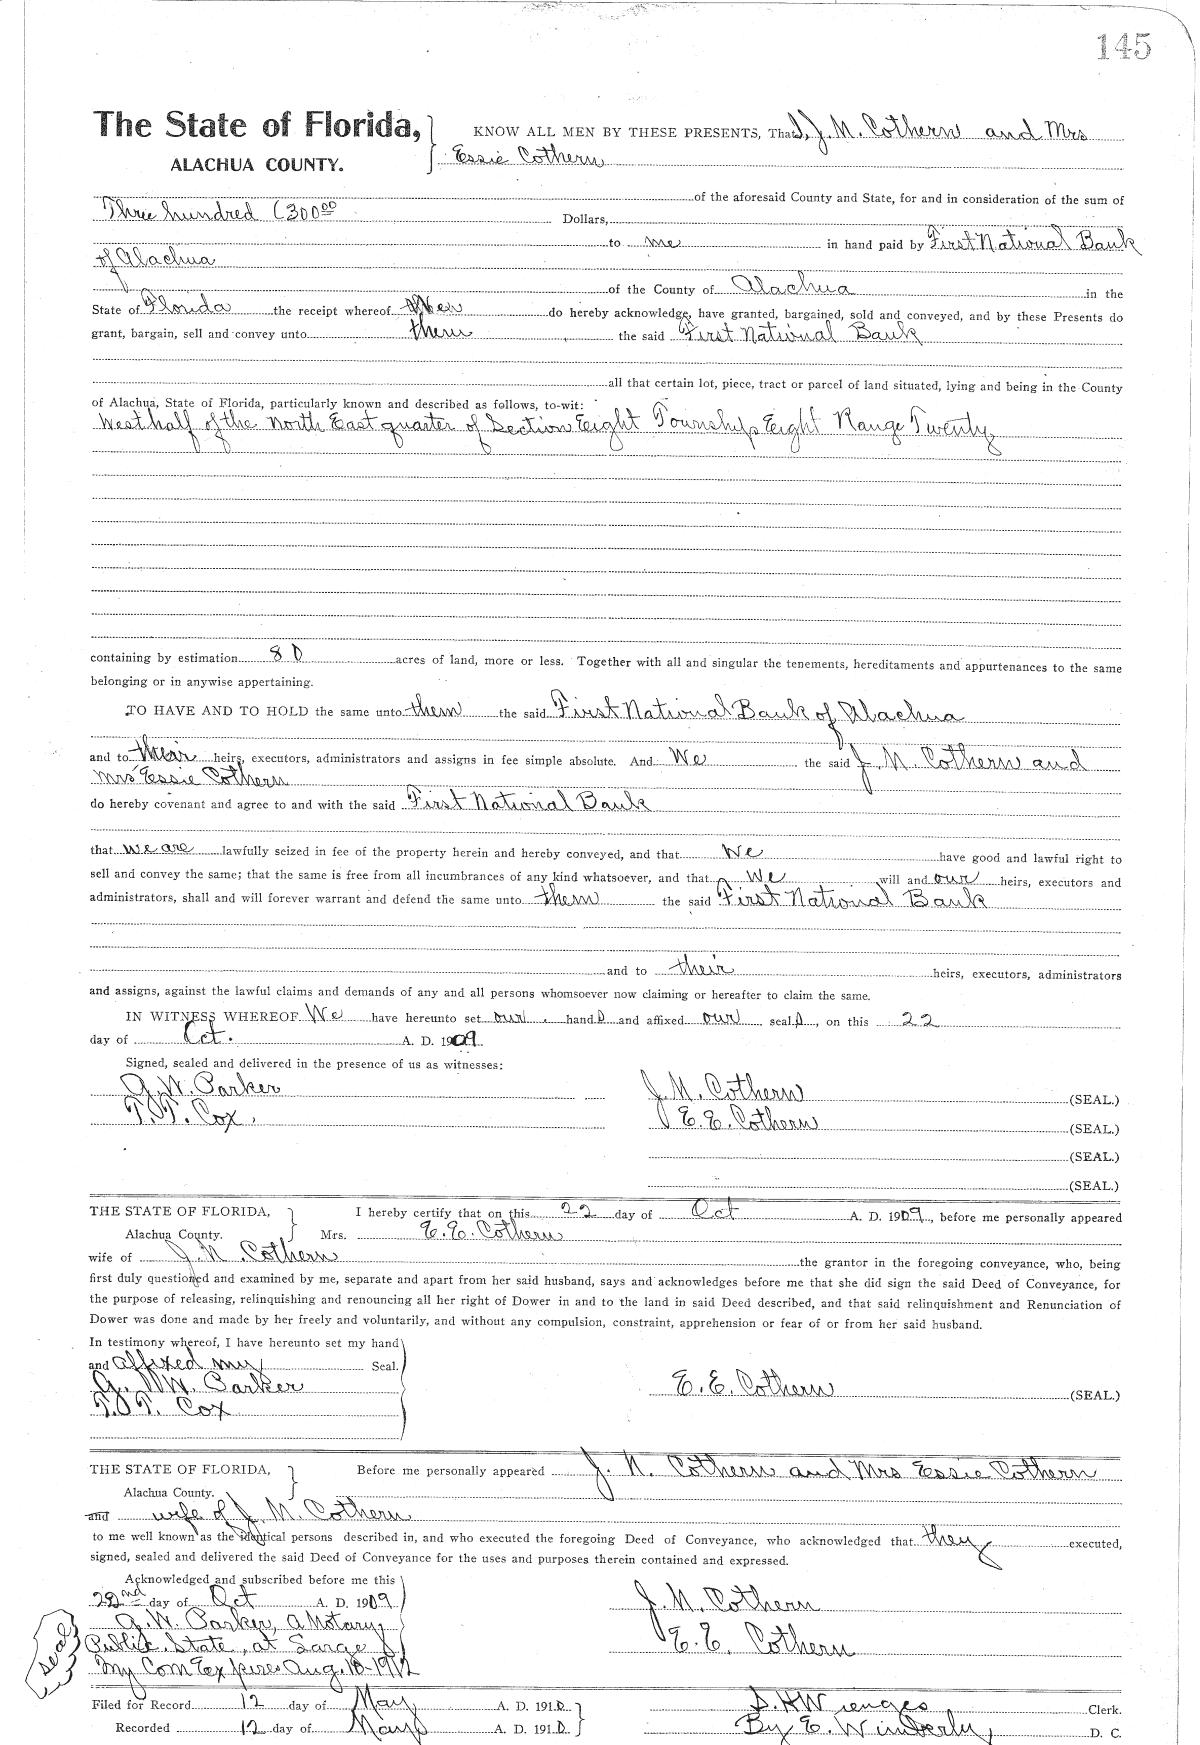 145
The State of Florida, KNOW ALL MEN BY THESE PRESENTS, That I, J. N. Cothern and Mrs
ALACHUA COUNTY. Essie Cothern
of the aforesaid County and State, for and in consideration of the sum of
Three hundred (300 00 Dollars,
to me in hand paid by First National Bank
of Alachua
of the County of Alachua in the
State of Florida the receipt whereof do hereby acknowledge, have granted, bargained, sold and conveyed, and by these Presents do
grant, bargain, sell and convey unto them the said First National Bank
all that certain lot, piece, tract or parcel of land situated, lying and being in the County
of Alachua, State of Florida, particularly known and described as follows, to-wit:
West half of the North East quarter of Section Eight Township Eight Range Twenty
containing by estimation 80 acres of land, more or less. Together with all and singular the tenements, hereditaments and appurtenances to the same
belonging or in anywise appertaining.
TO HAVE AND TO HOLD the same unto them the said First National Bank of Alachua
and to their heirs, executors, administrators and assigns in fee simple absolute. And We the said J. N. Cothern and
Mrs Essie Cothern
do hereby covenant and agree to and with the said First National Bank
that we are lawfully seized in fee of the property herein and hereby conveyed, and that We have good and lawful right to
sell and convey the same; that the same is free from all incumbrances of any kind whatsoever, and that We will and our heirs, executors and
administrators, shall and will forever warrant and defend the same unto them the said First National Bank
and to their heirs, executors, administrators
and assigns, against the lawful claims and demands of any and all persons whomsoever now claiming or hereafter to claim the same.
IN WITNESS WHEREOF We have hereunto set our hands and affixed our seals, on this 22
day of Oct. A. D. 1909
Signed, sealed and delivered in the presence of us as witnesses:
G. W. Parker J. N. Cothern (SEAL.)
T. T. Cox. E. E. Cothern (SEAL.)
(SEAL.)
(SEAL.)
THE STATE OF FLORIDA, I hereby certify that on this 22 day of Oct A. D. 1909, before me personally appeared
Alachua County. Mrs. E. E. Cothern
wife of J. N. Cothern the grantor in the foregoing conveyance, who, being
first duly questioned and examined by me, separate and apart from her said husband, says and acknowledges before me that she did sign the said Deed of Conveyance, for
the purpose of releasing, relinquishing and renouncing all her right of Dower in and to the land in said Deed described, and that said relinquishment and Renunciation of
Dower was done and made by her freely and voluntarily, and without any compulsion, constraint, apprehension or fear of or from her said husband.
In testimony whereof, I have hereunto set my hand
and affixed my Seal.
G. W. Parker E. E. Cothern (SEAL.)
T. T. Cox
THE STATE OF FLORIDA, Before me personally appeared J. N. Cothern and Mrs Essie Cothern
Alachua County.
and wife of J. N. Cothern
to me well known as the identical persons described in, and who executed the foregoing Deed of Conveyance, who acknowledged that they executed,
signed, sealed and delivered the said Deed of Conveyance for the uses and purposes therein contained and expressed.
Acknowledged and subscribed before me this
22nd day of Oct A. D. 1909 J. N. Cothern
G. W. Parker, a Notary
Public State, at Large E. E. Cothern
Seal My Com Expires Aug. 10-1912
Filed for Record 12 day of May A. D. 1910 S. H. Wienges Clerk.
Recorded 12 day of May A. D. 1910 By E. Wimberly, D. C.